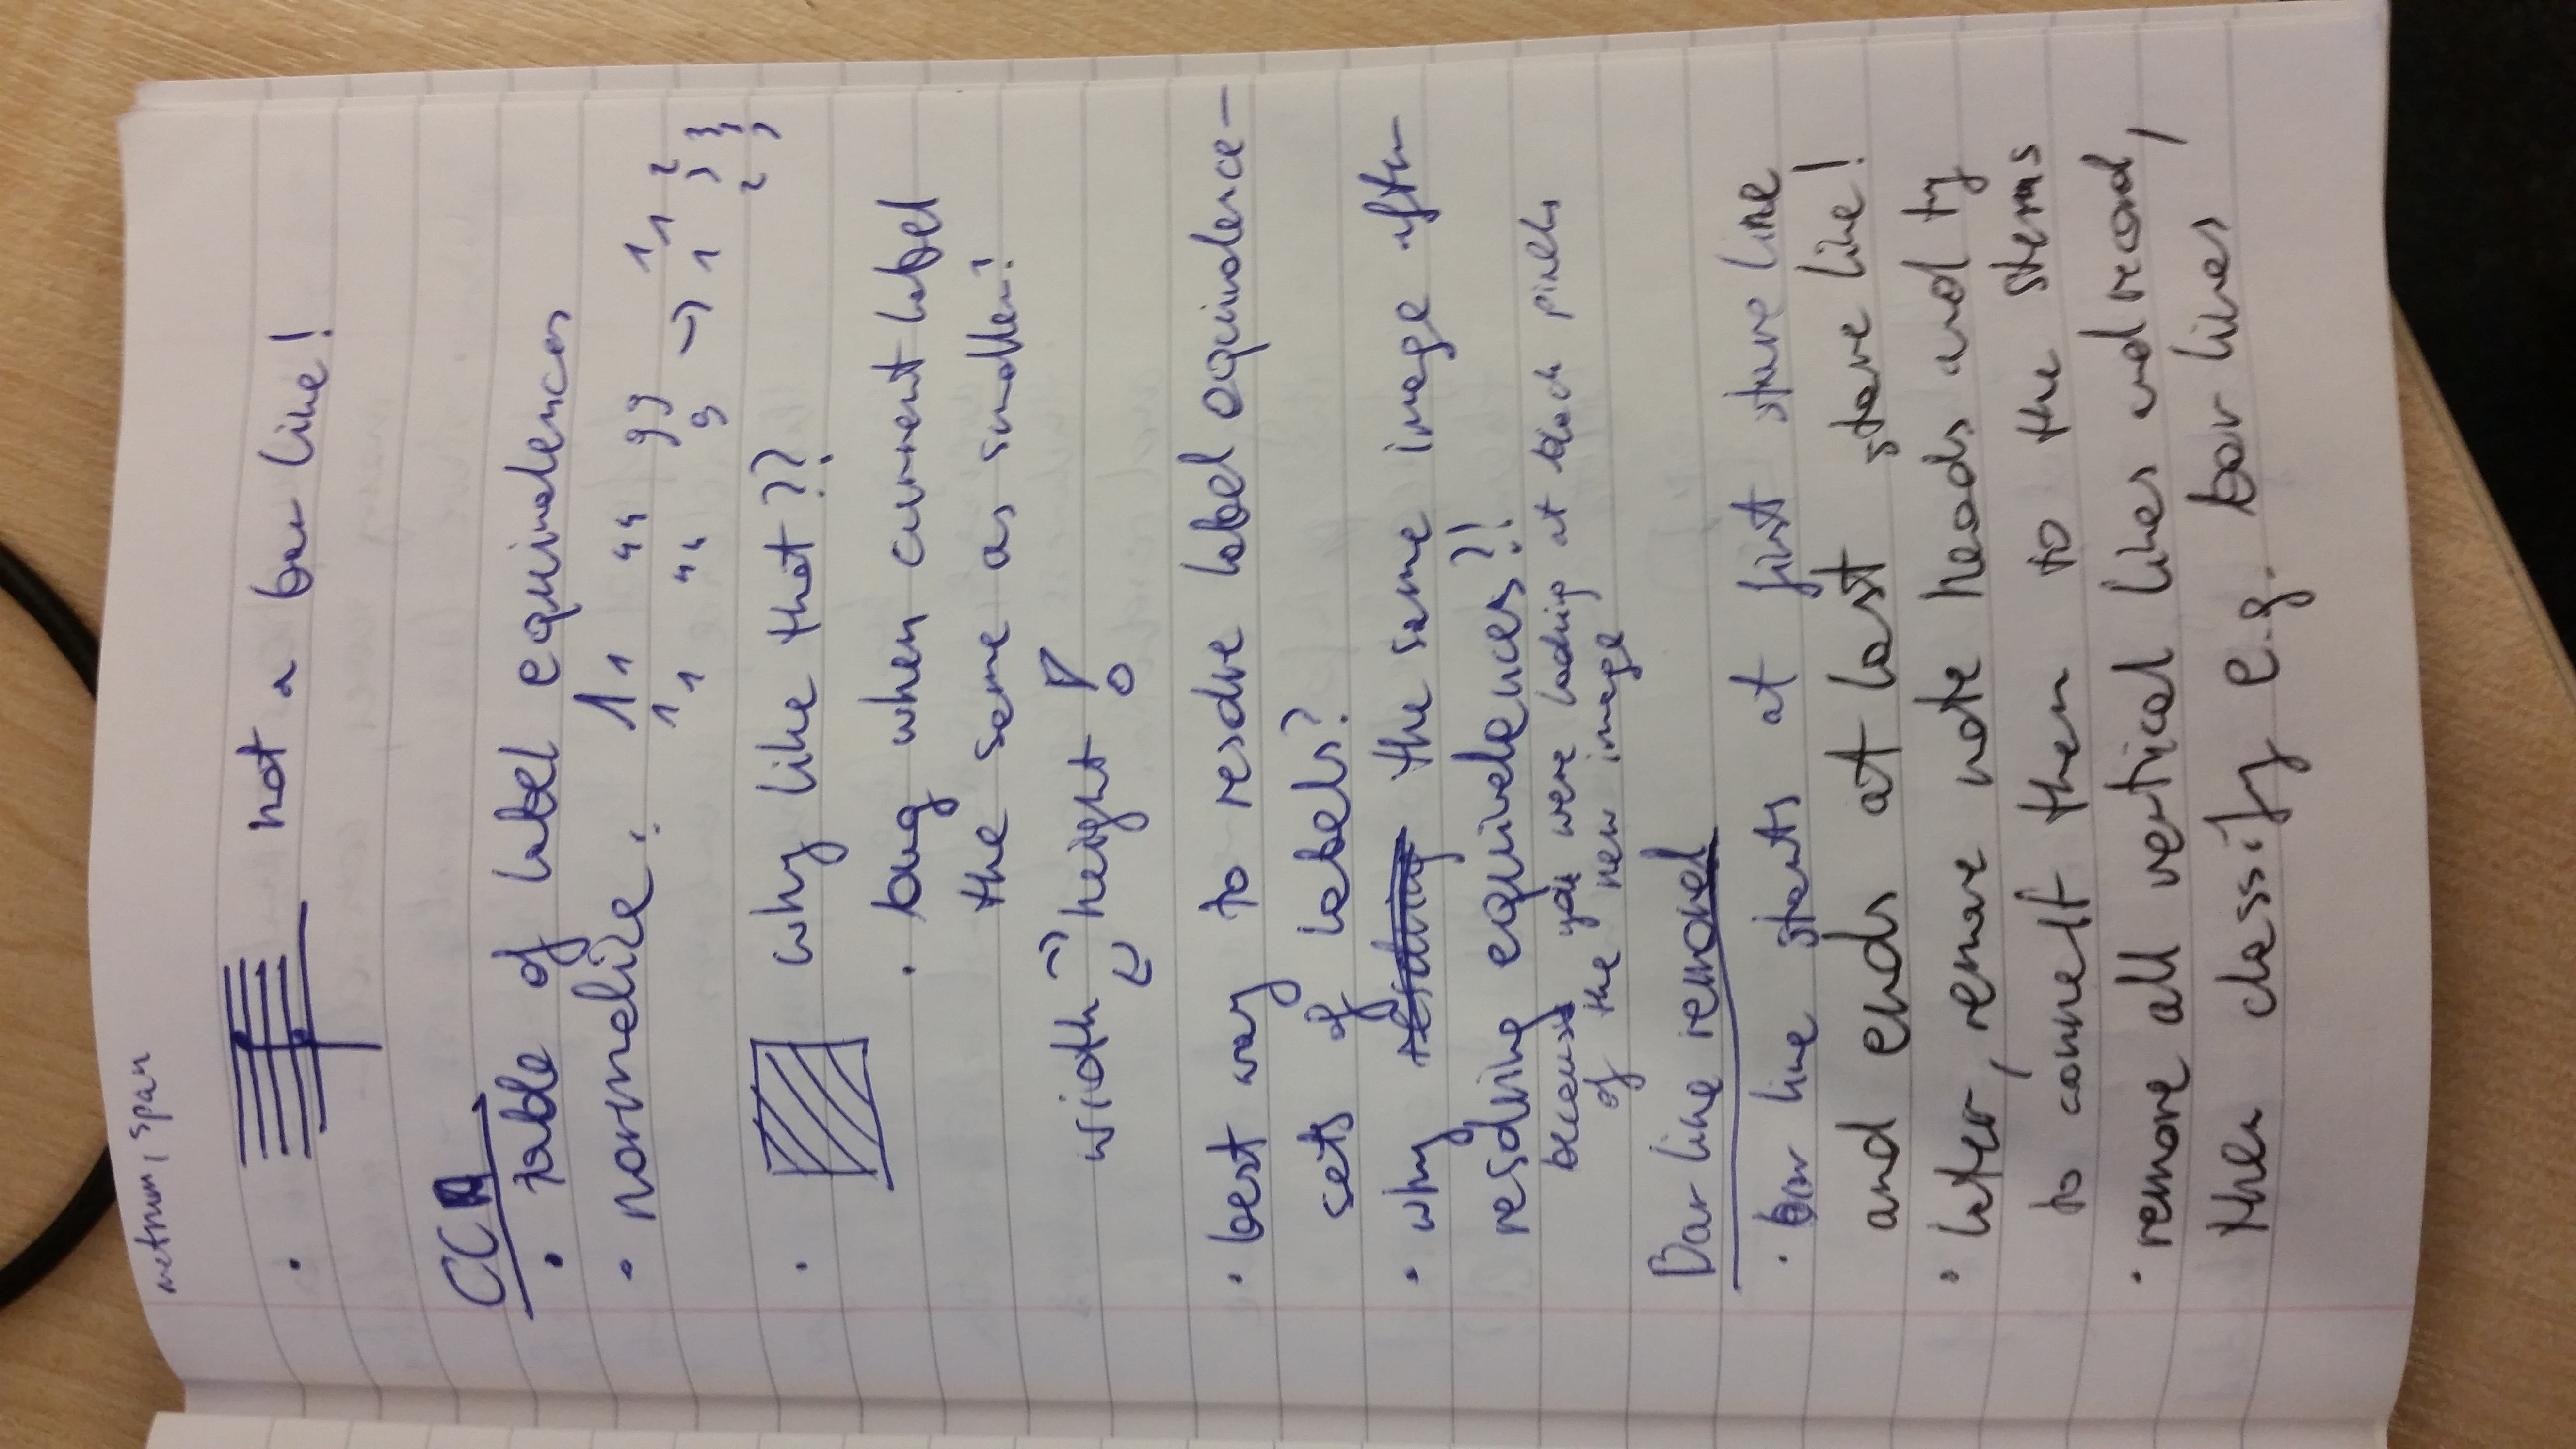 metrum, span
• not a bar line!
CCA
• table of label equivalences
• normalize: 11 44 99 11 2
11 44 9 → 1 3 3
2 3
• why like that??
• bug when current label
the same as smaller?
width height !
• best way to resolve label equivalence –
sets of labels?
• why the same image after
resolving equivalences?!
because you were looking at black pixels
of the new image
Bar line removal
• bar line starts at first stave line
and ends at last stave line!
• later, remove note heads and try
to connect them to the stems
• remove all vertical lines and record,
then classify e.g. bar lines